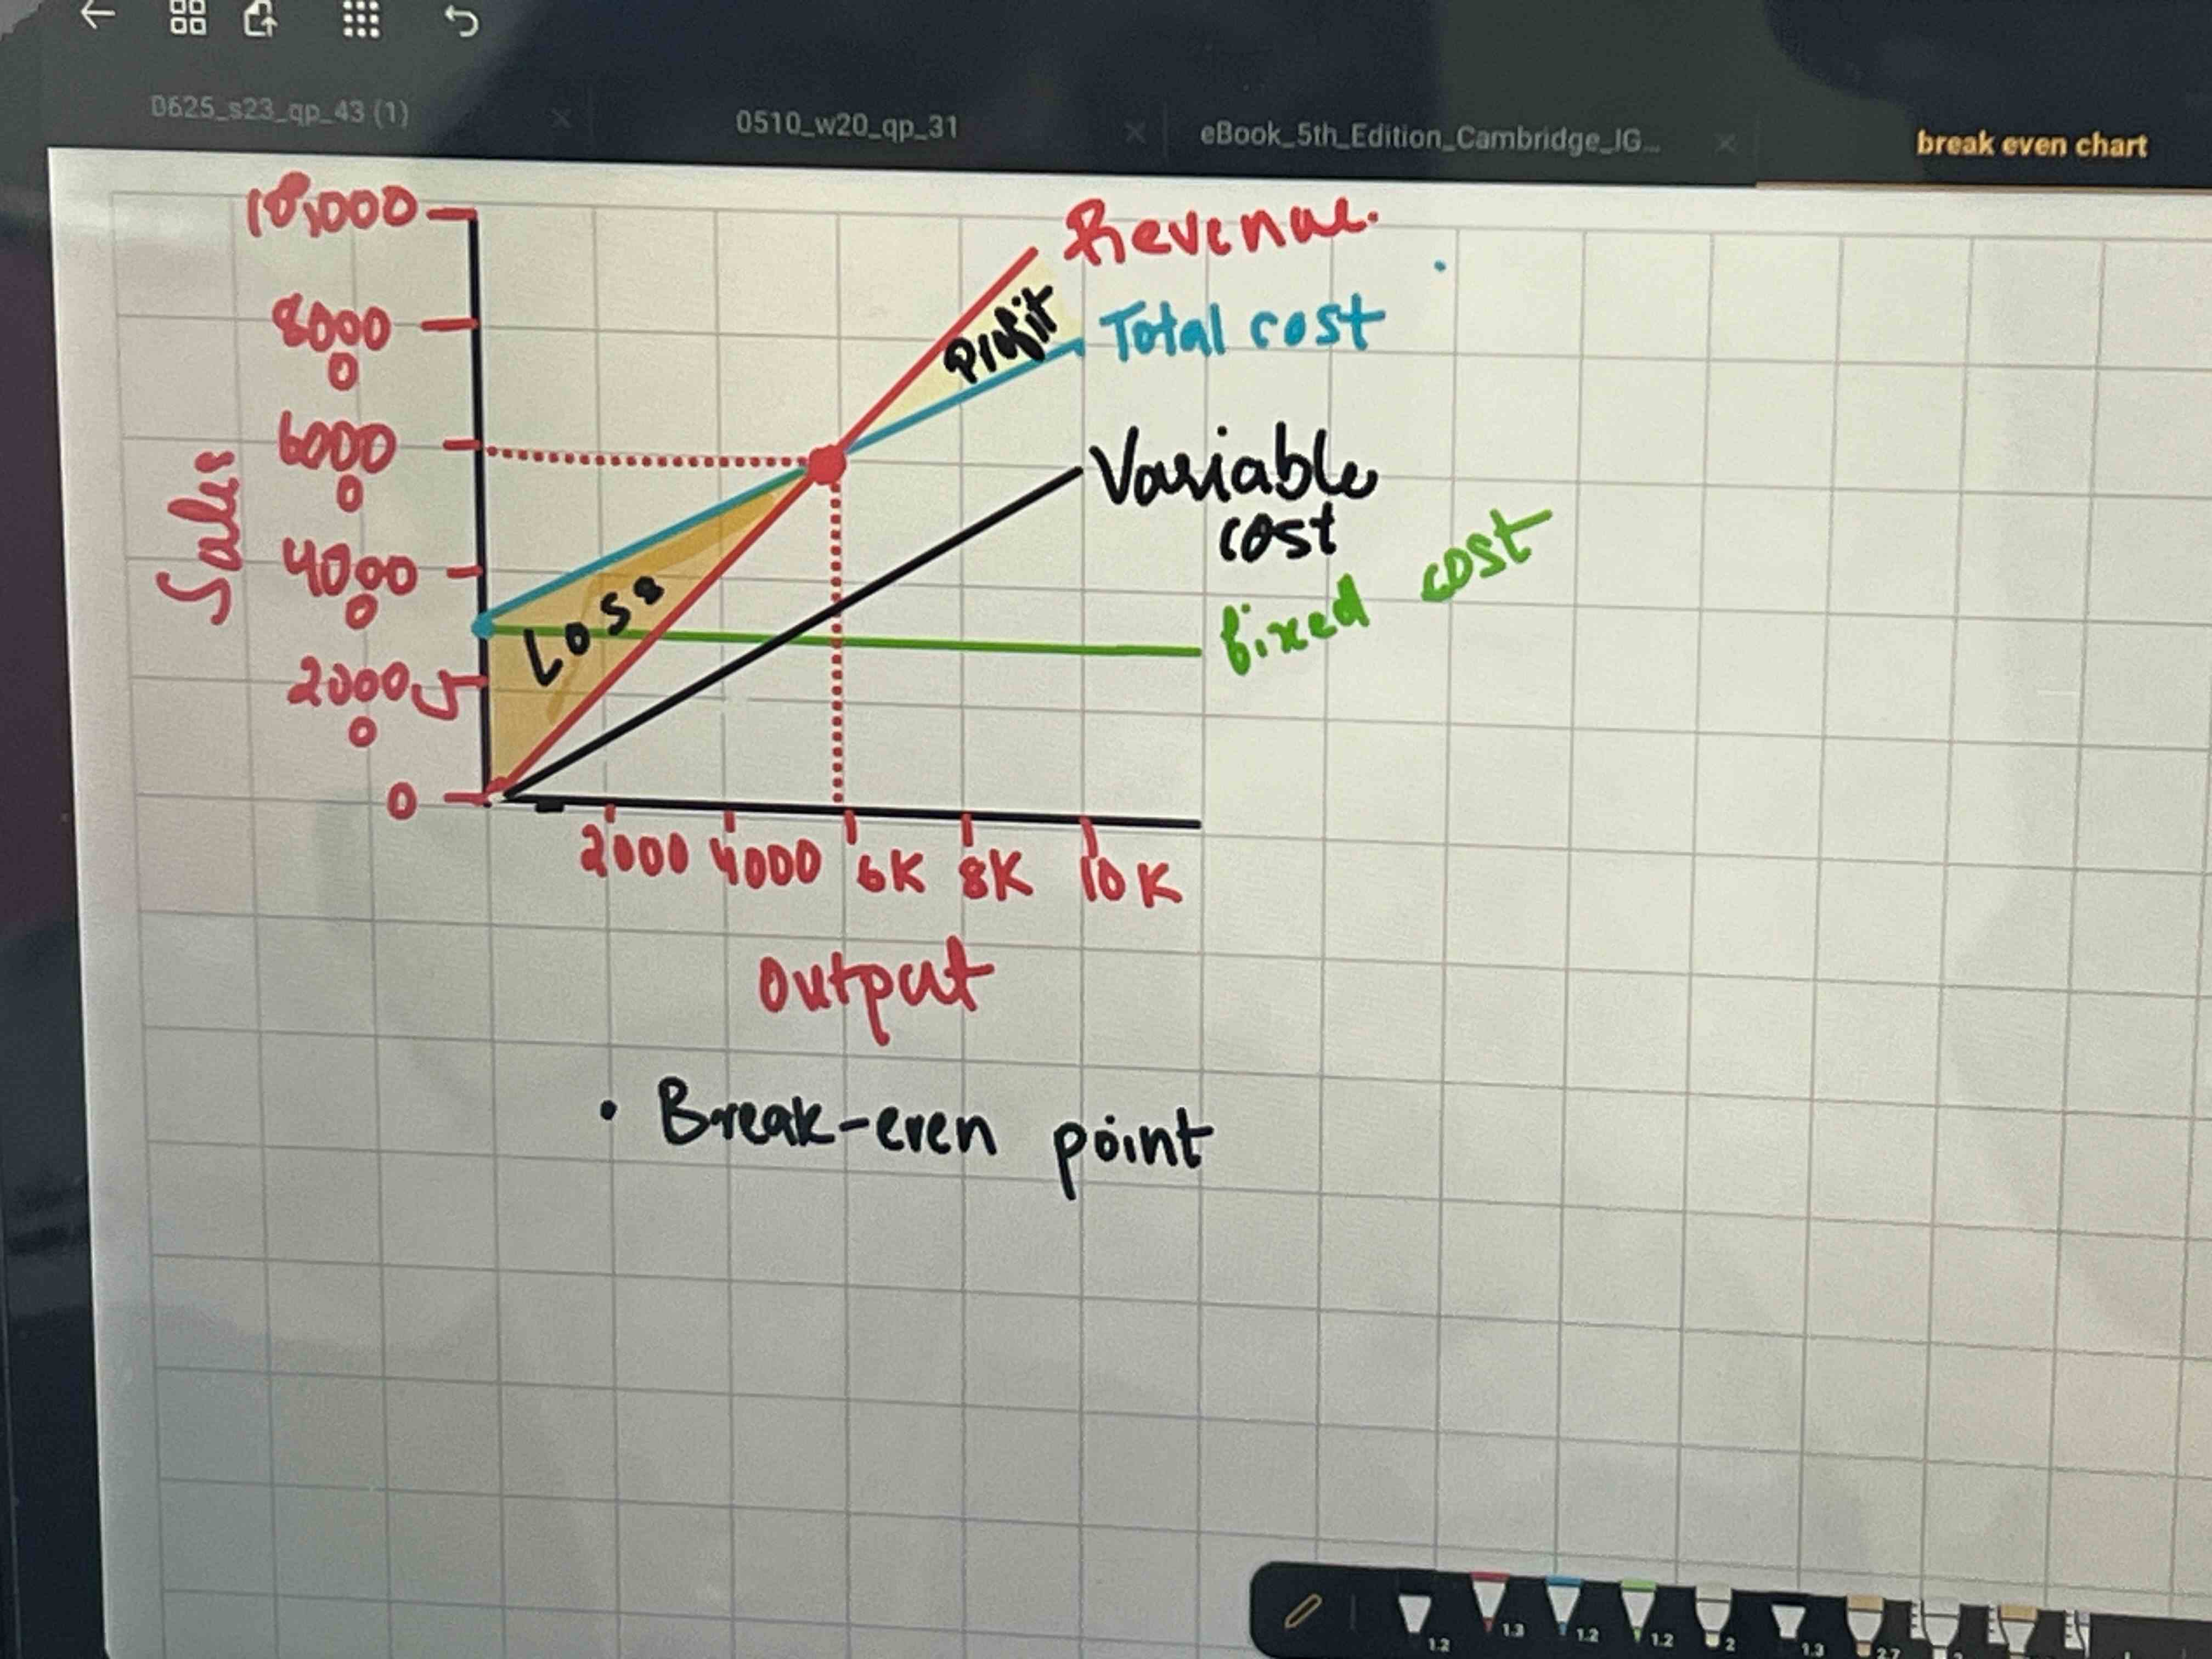 0625_s23_qp_43 (1)
0510_w20_qp_31
eBook_5th_Edition_Cambridge_IG...
break even chart
Revenue.
Profit
Total cost
8000
0
6000
0
Sales
Variable
cost
4000
0
Loss
fixed cost
2000
0
0
2000 4000 6K 8K 10K
output
• Break-even point
1.2 1.3 1.2 1.2 2 1.3 2.7